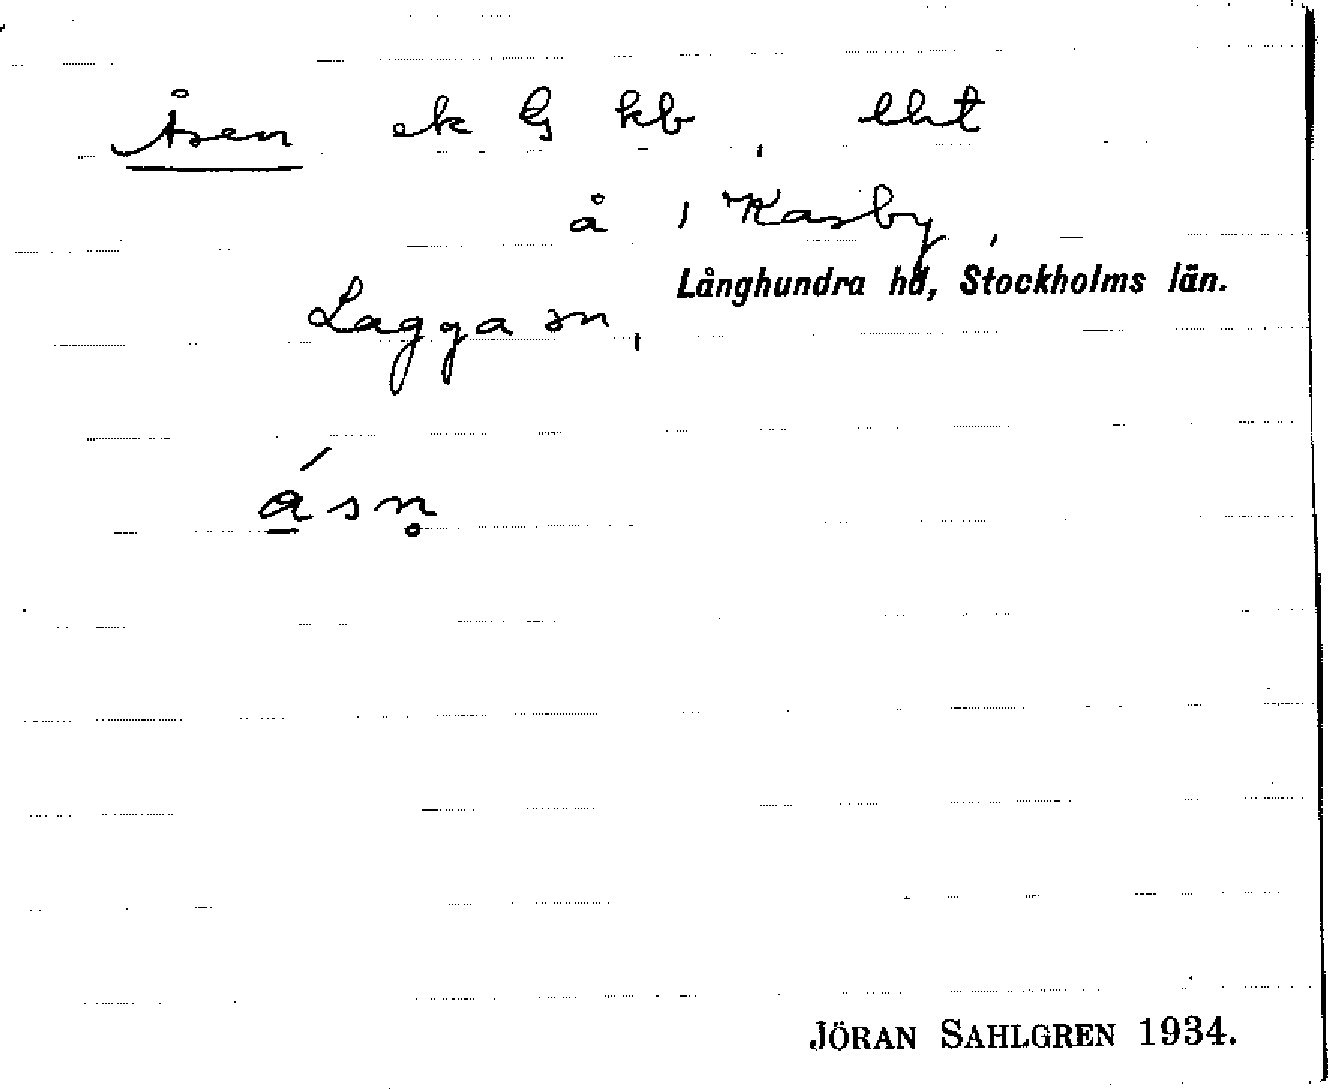 Åsen ek G kb, lht
å 1 Kasby,
Långhundra hd, Stockholms län.
Lagga sn,
åsn
JÖRAN SAHLGREN 1934.